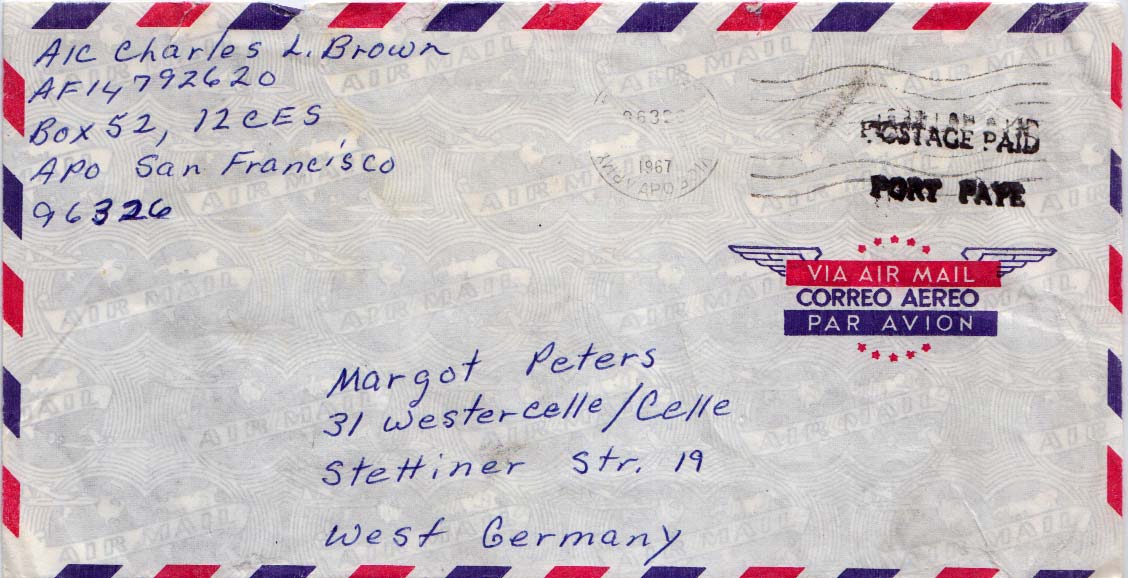 A1C Charles L. Brown
AF14792620
Box 52, 12CES
APO San Francisco
96326
1967
ARMY APO
POSTAGE PAID
PORT PAYE
VIA AIR MAIL
CORREO AEREO
PAR AVION
Margot Peters
31 Westercelle/Celle
Stettiner Str. 19
West Germany
AIR MAIL